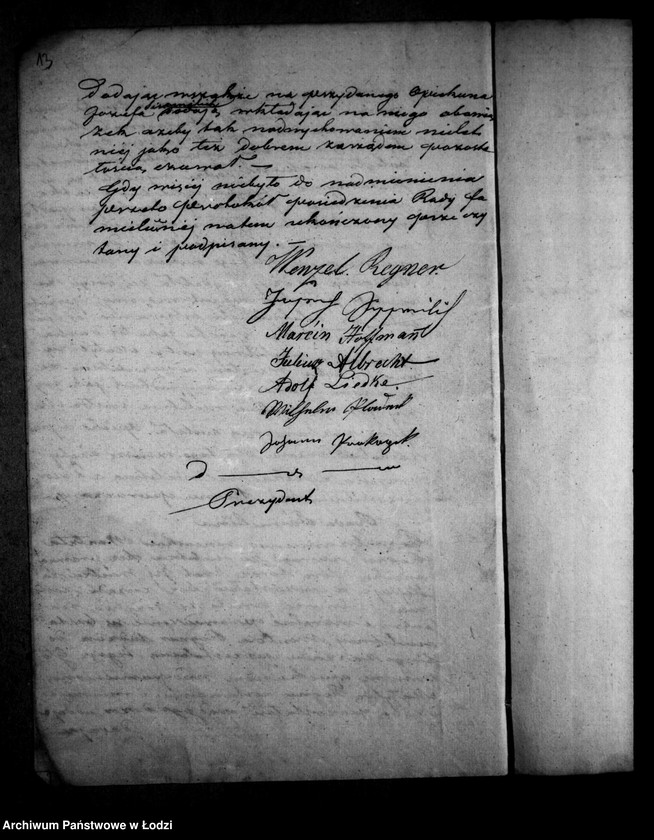 13
Dodając względnie na przydanego Opiekuna
Józefa wkładając na niego obowią
zek ażeby tak nad wychowaniem nielet
niej jako też dobrem zarządem pozosta
łością, czuwał. —
Gdy więcej niebyło do nadmienienia
przeto protokół posiedzenia Rady fa
milijnej na tem ukończony prze czy
tany i podpisany. —
Wenzel Regner.
Joseph
Marcin Hoffmann
Juliusz Albrecht
Adolf Liedke.
Wilhelm
Johann Prokopek.
Prezydent
Archiwum Państwowe w Łodzi